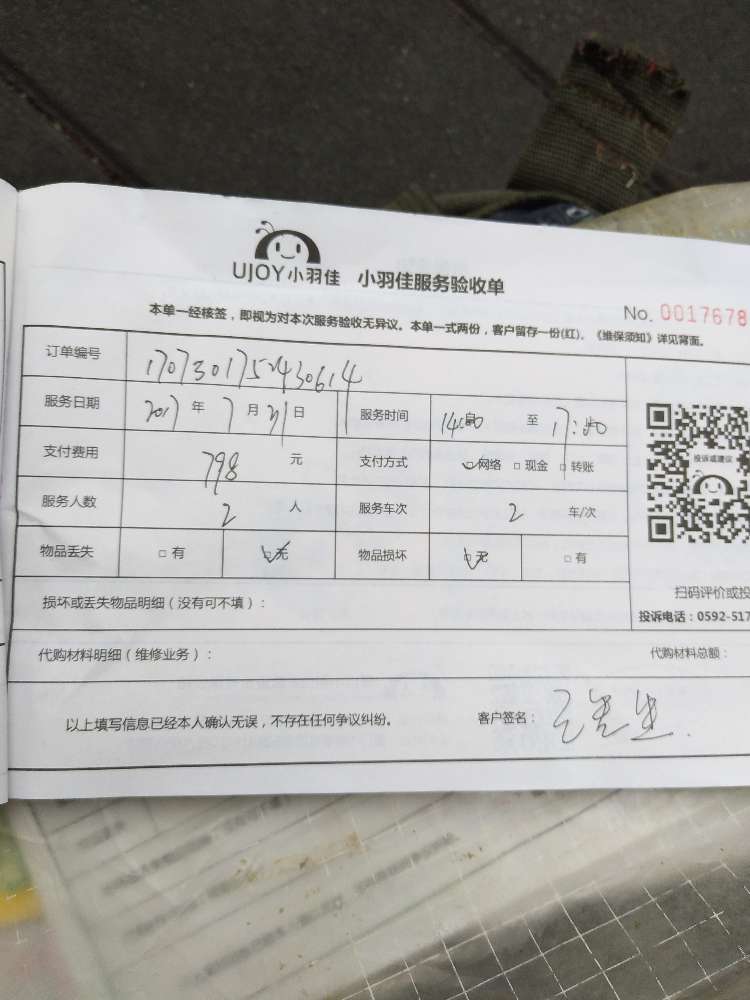 UJOY小羽佳 小羽佳服务验收单
No. 0017678
本单一经核签，即视为对本次服务验收无异议。本单一式两份，客户留存一份(红)。《维保须知》详见背面。
订单编号 170730175430614
服务日期 2017 年 7 月 31 日 服务时间 至
支付费用 798 元 支付方式 网络 □ 现金 □ 转账
服务人数 2 人 服务车次 2 车/次
物品丢失 □ 有 □ 无 物品损坏 □ 无 □ 有
投诉或建议
扫码评价或投
投诉电话：0592-517
损坏或丢失物品明细（没有可不填）：
代购材料明细（维修业务）： 代购材料总额：
以上填写信息已经本人确认无误，不存在任何争议纠纷。 客户签名： 王先生